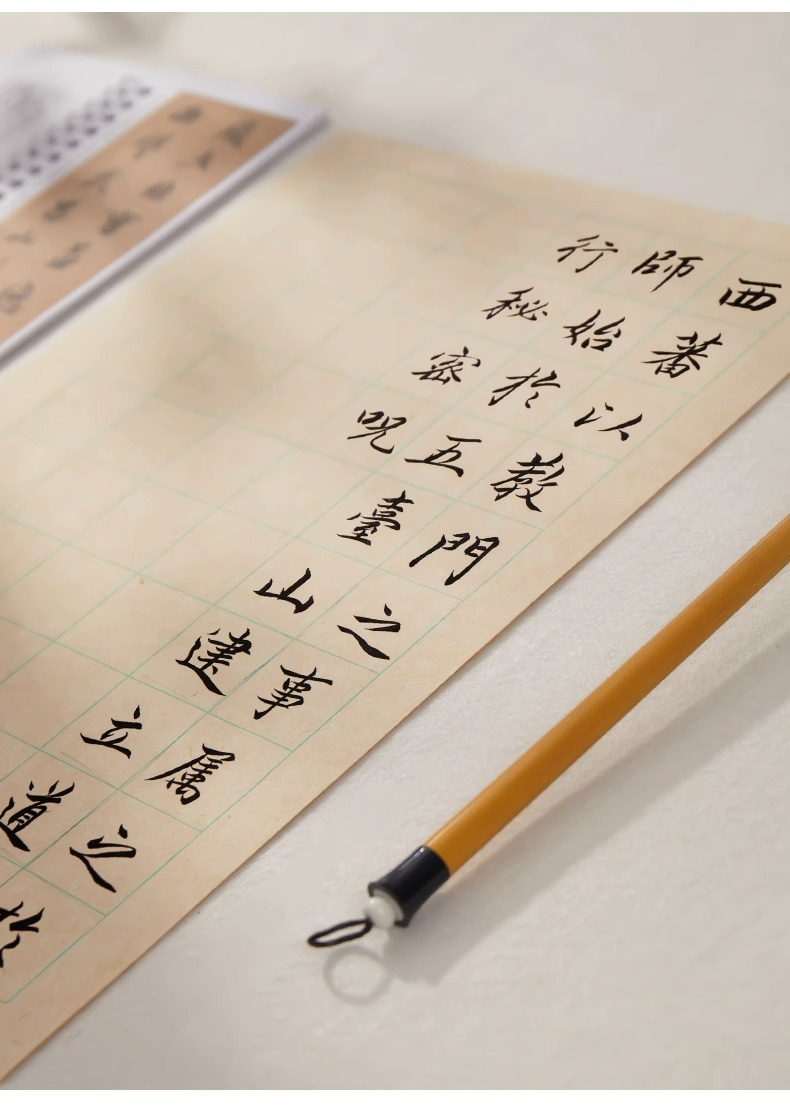 西蕃以教門之事属之於
師始於五臺山建立道
行秘密呪